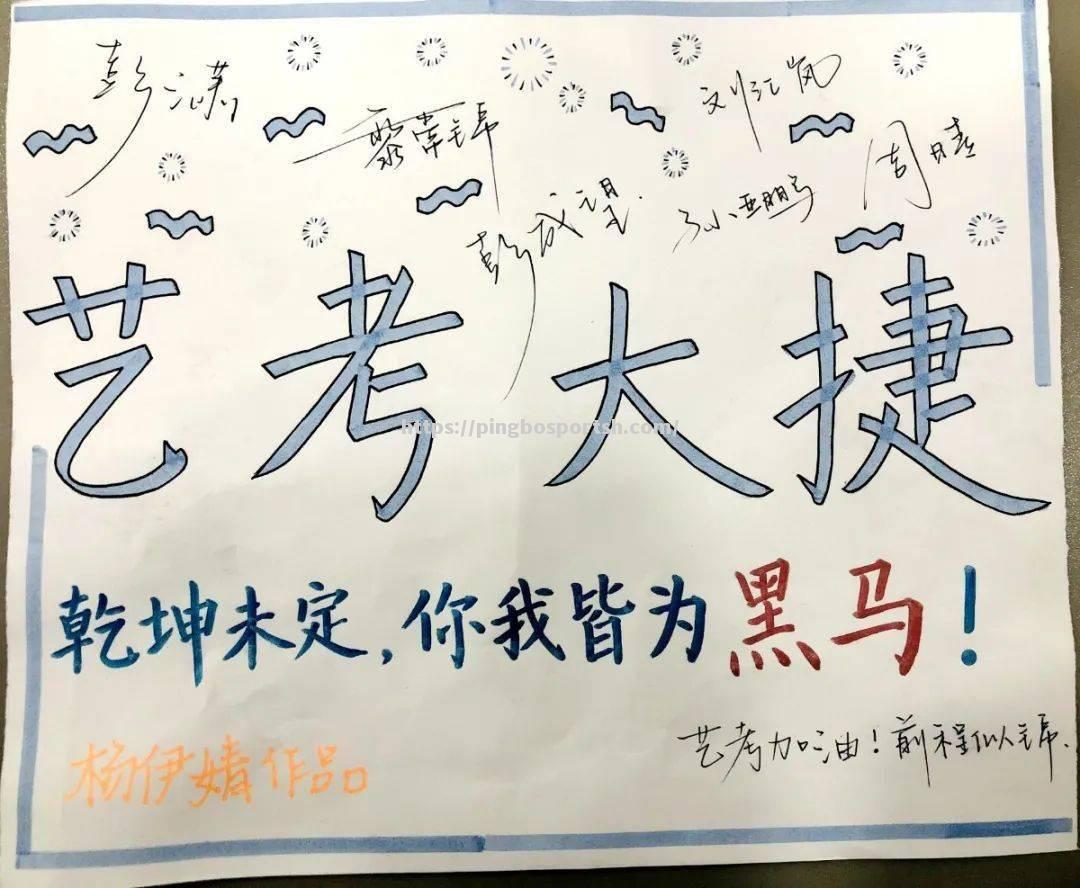 彭江潇
刘江岚
黎常锦
周晴
彭成望
孙亚鹏
艺考大捷
https://pingbosportsh.com/
乾坤未定,你我皆为黑马!
艺考加油!前程似锦.
杨伊婧作品